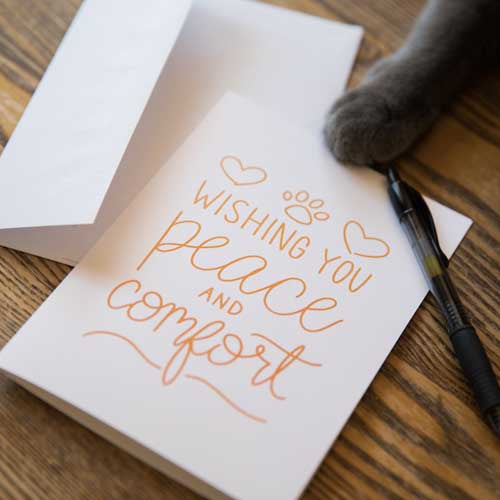 WISHING YOU
peace
AND
comfort